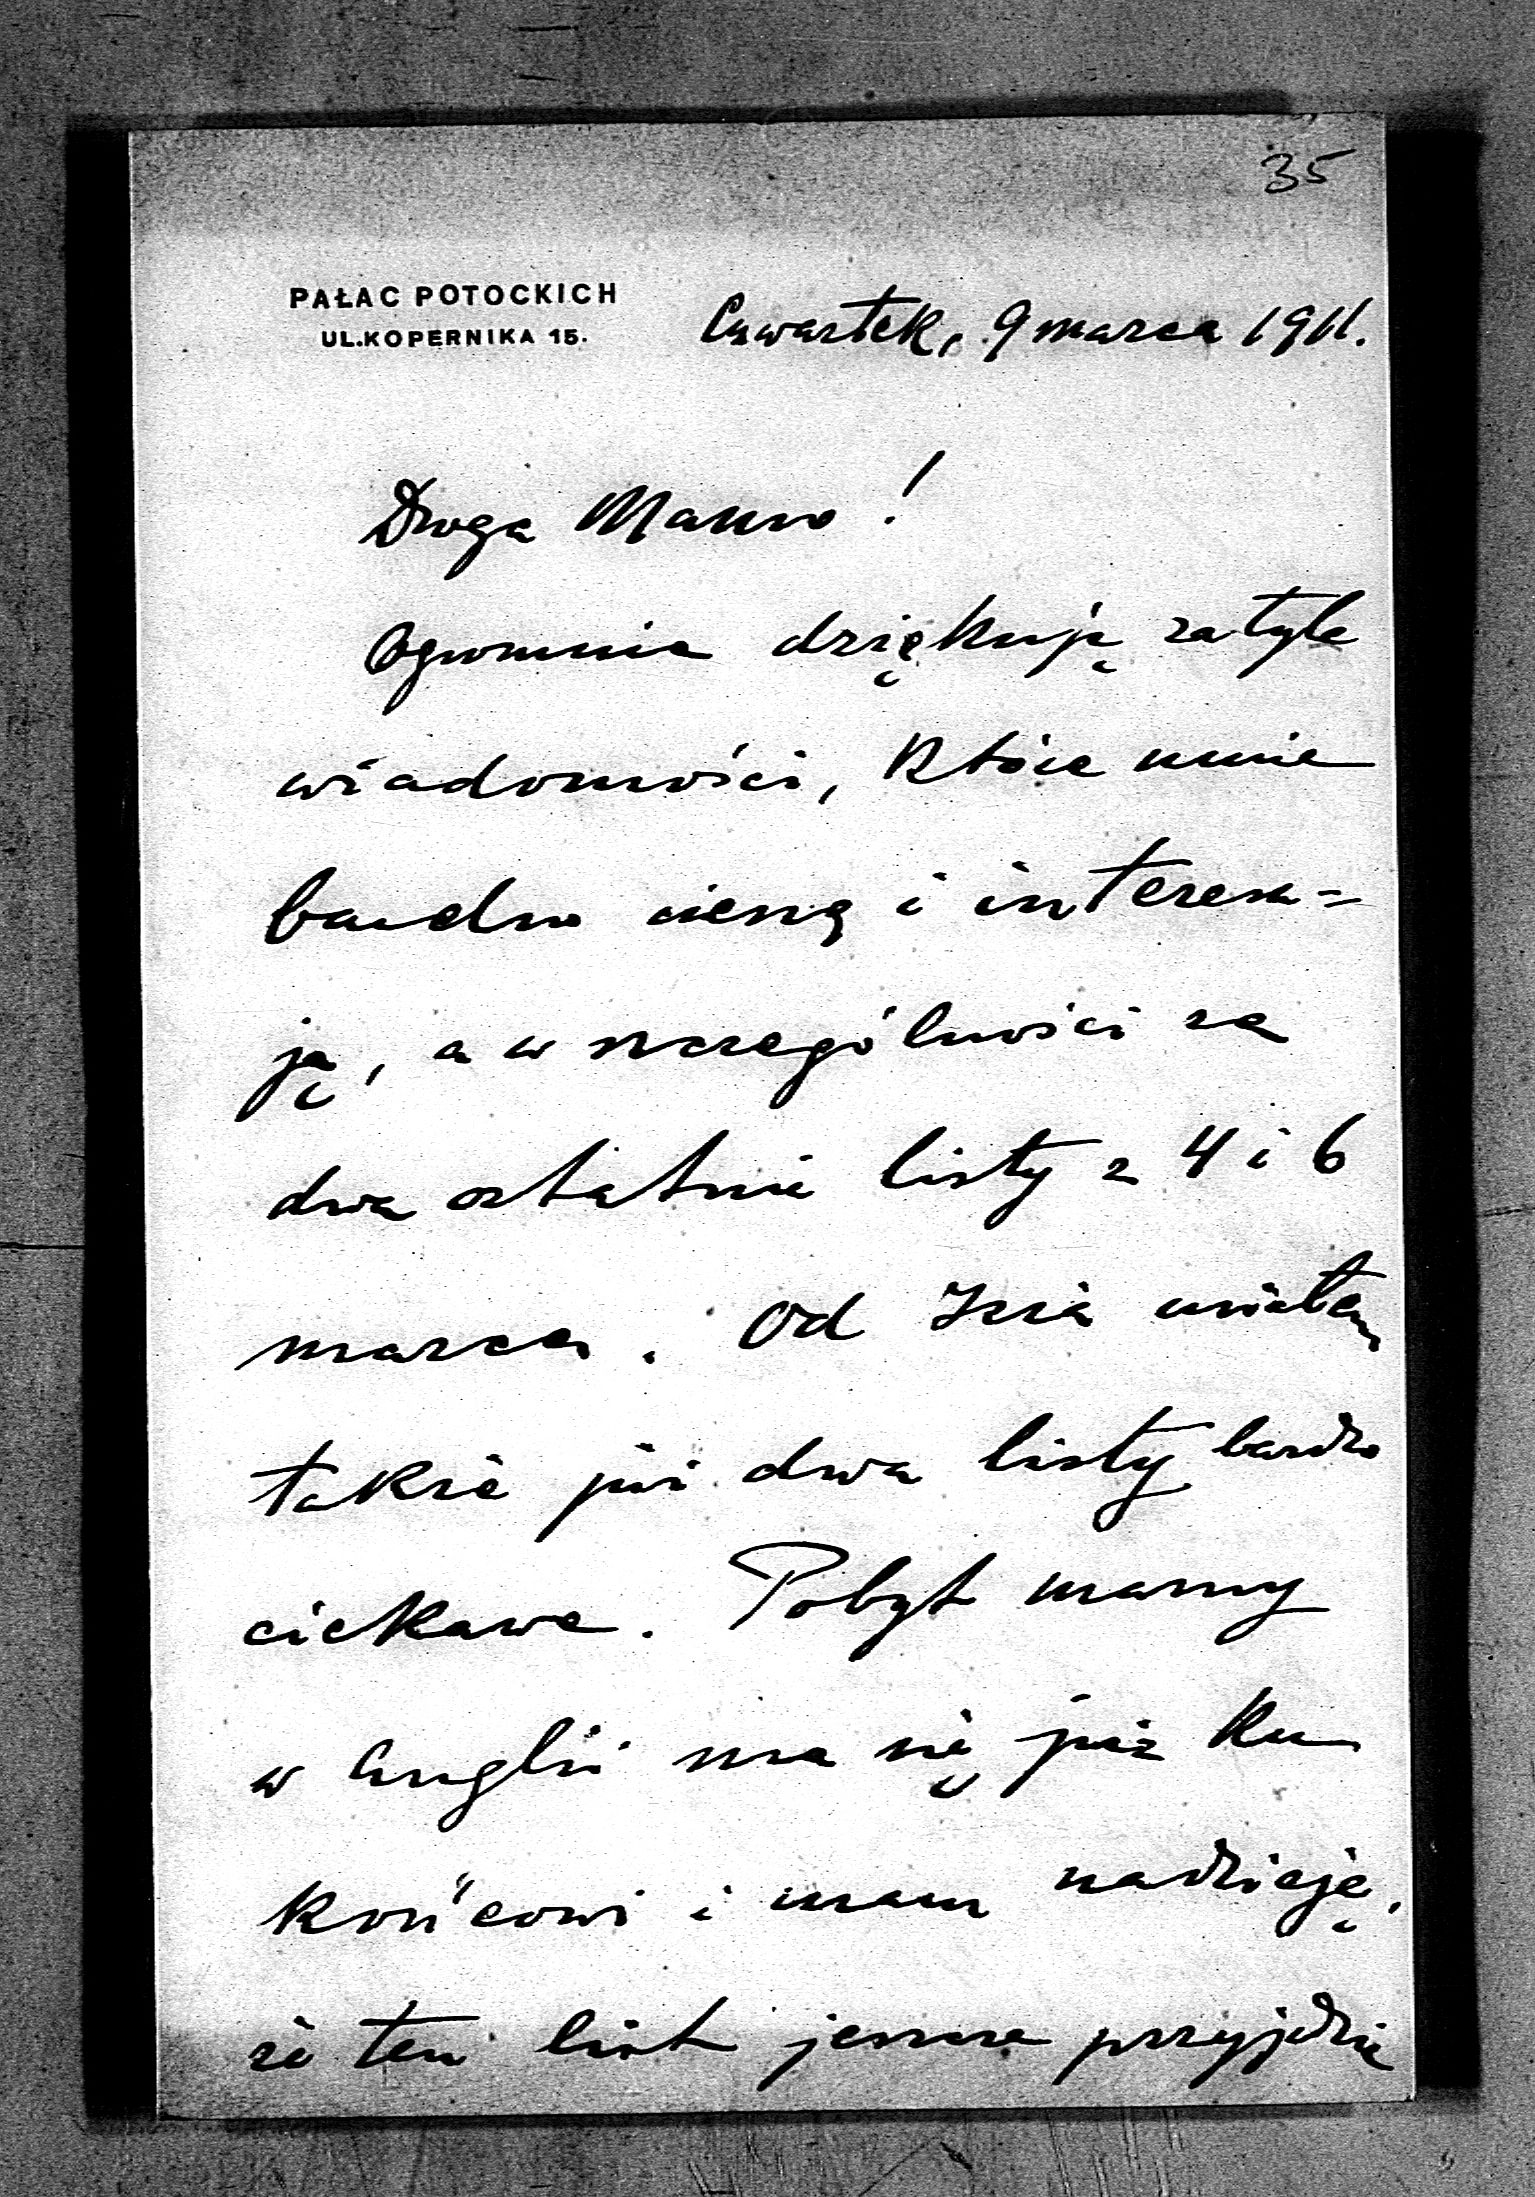 35
PAŁAC POTOCKICH
UL.KOPERNIKA 15.
Czwartek, 9 marca 1911.
Droga Mamo!
Ogromnie dziękuję za tyle
wiadomości, które mnie
bardzo cieszą i interesu=
ją, a w szczególności za
dwa ostatnie listy z 4 i 6
marca. Od miałem
także już dwa listy bardzo
ciekawe. Pobyt mamy
w Anglii ma się już ku
końcowi i mam nadzieję,
że ten list jeszcze przyjdzie